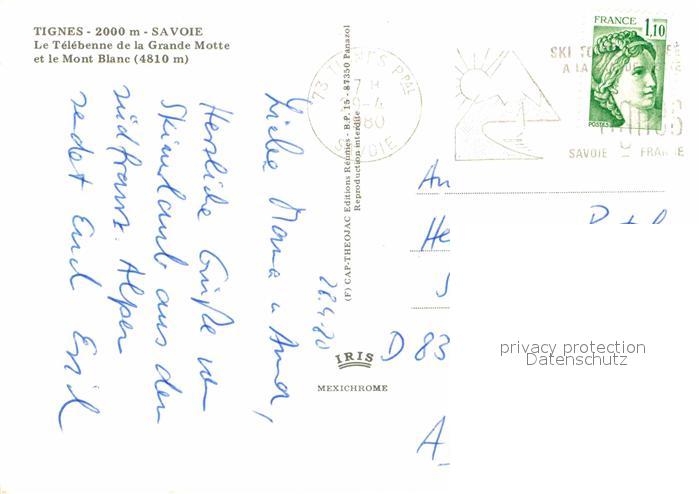 TIGNES - 2000 m - SAVOIE
Le Télébenne de la Grande Motte
et le Mont Blanc (4810 m)
28.4.80
Liebe Mama u
Herzliche Grüße vom
Skiurlaub aus den
südfranz. Alpen
sendet Euch Emil
(F) CAP-THEOJAC Editions Réunies - B.P. 15 - 87350 Panazol
Reproduction interdite
IRIS
MEXICHROME
FRANCE
1,10
POSTES
73 TIGNES PPAL
SAVOIE
80
SKI
A LA
SAVOIE FRANCE
An
He
D 83
A
privacy protection
Datenschutz